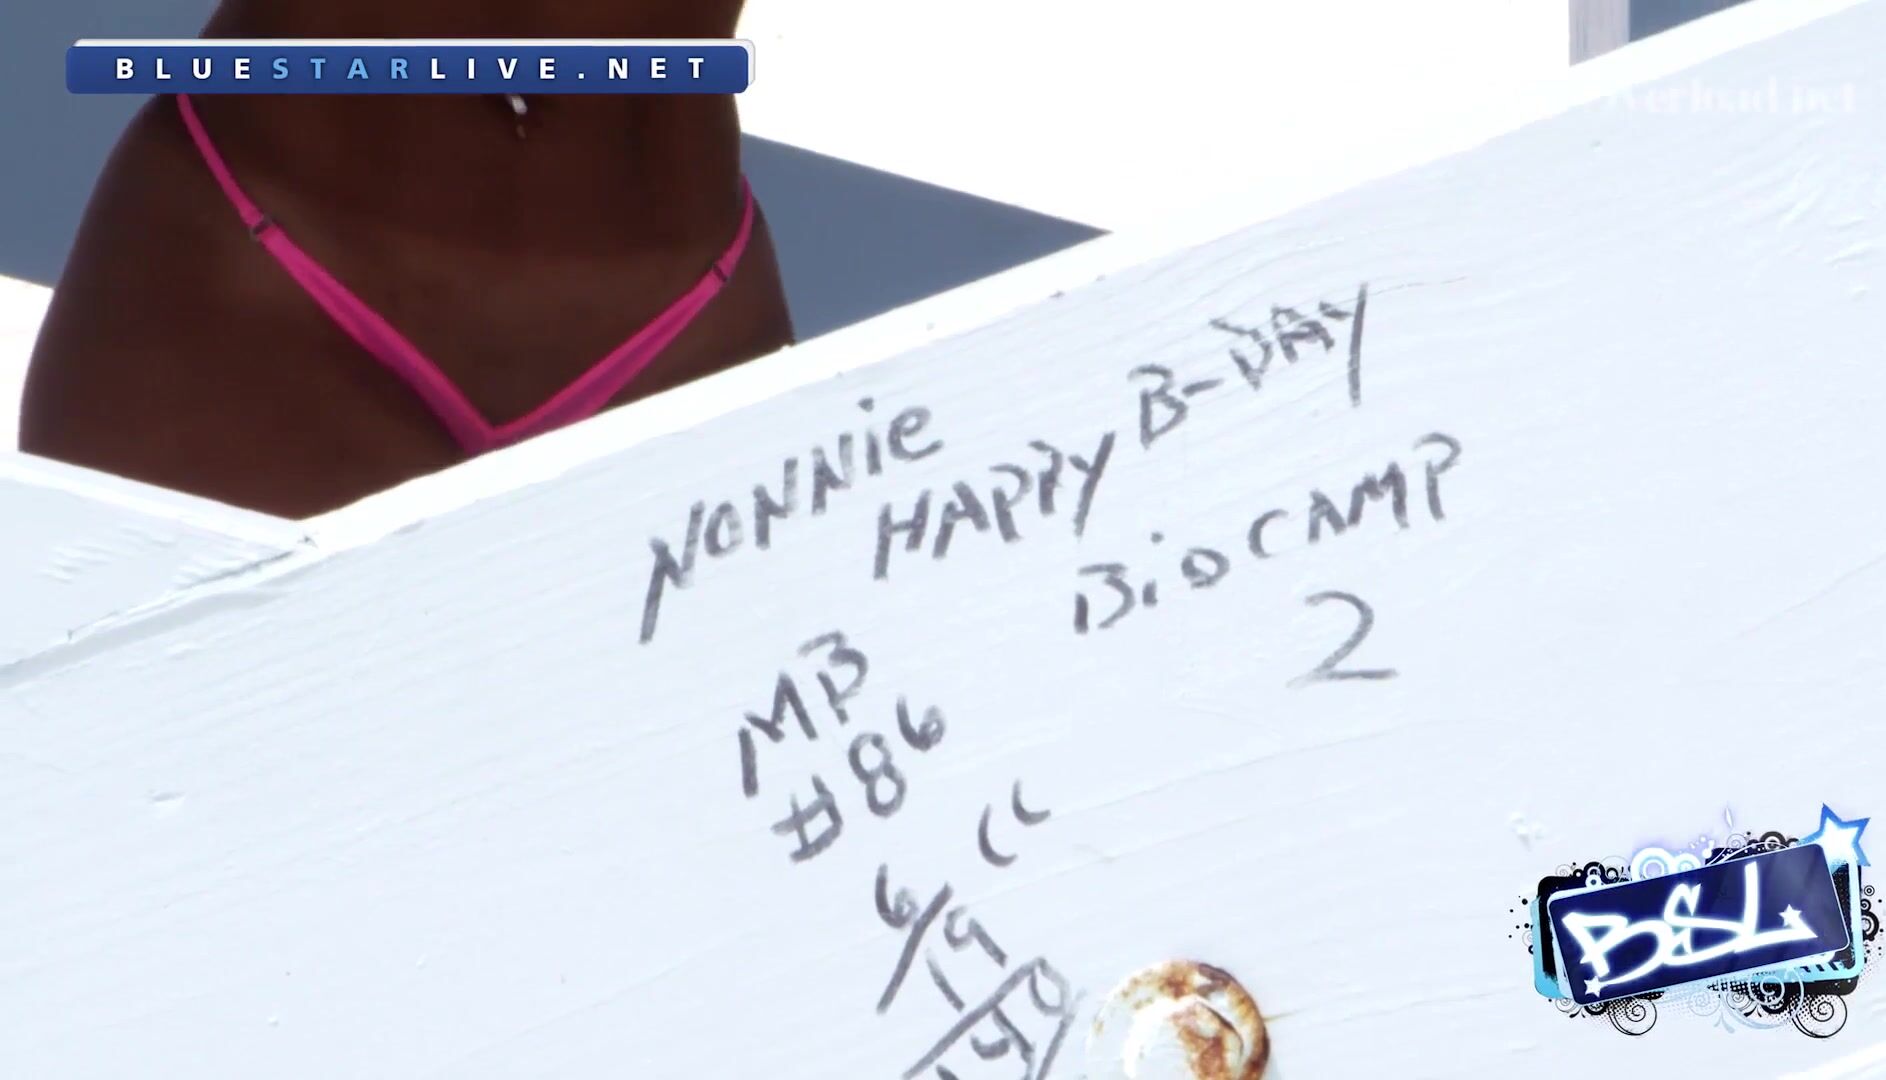 BLUESTARLIVE.NET
NONNie
HAPPY B-DAY
BioCAMP
2
MB
#86
6/19
BSL